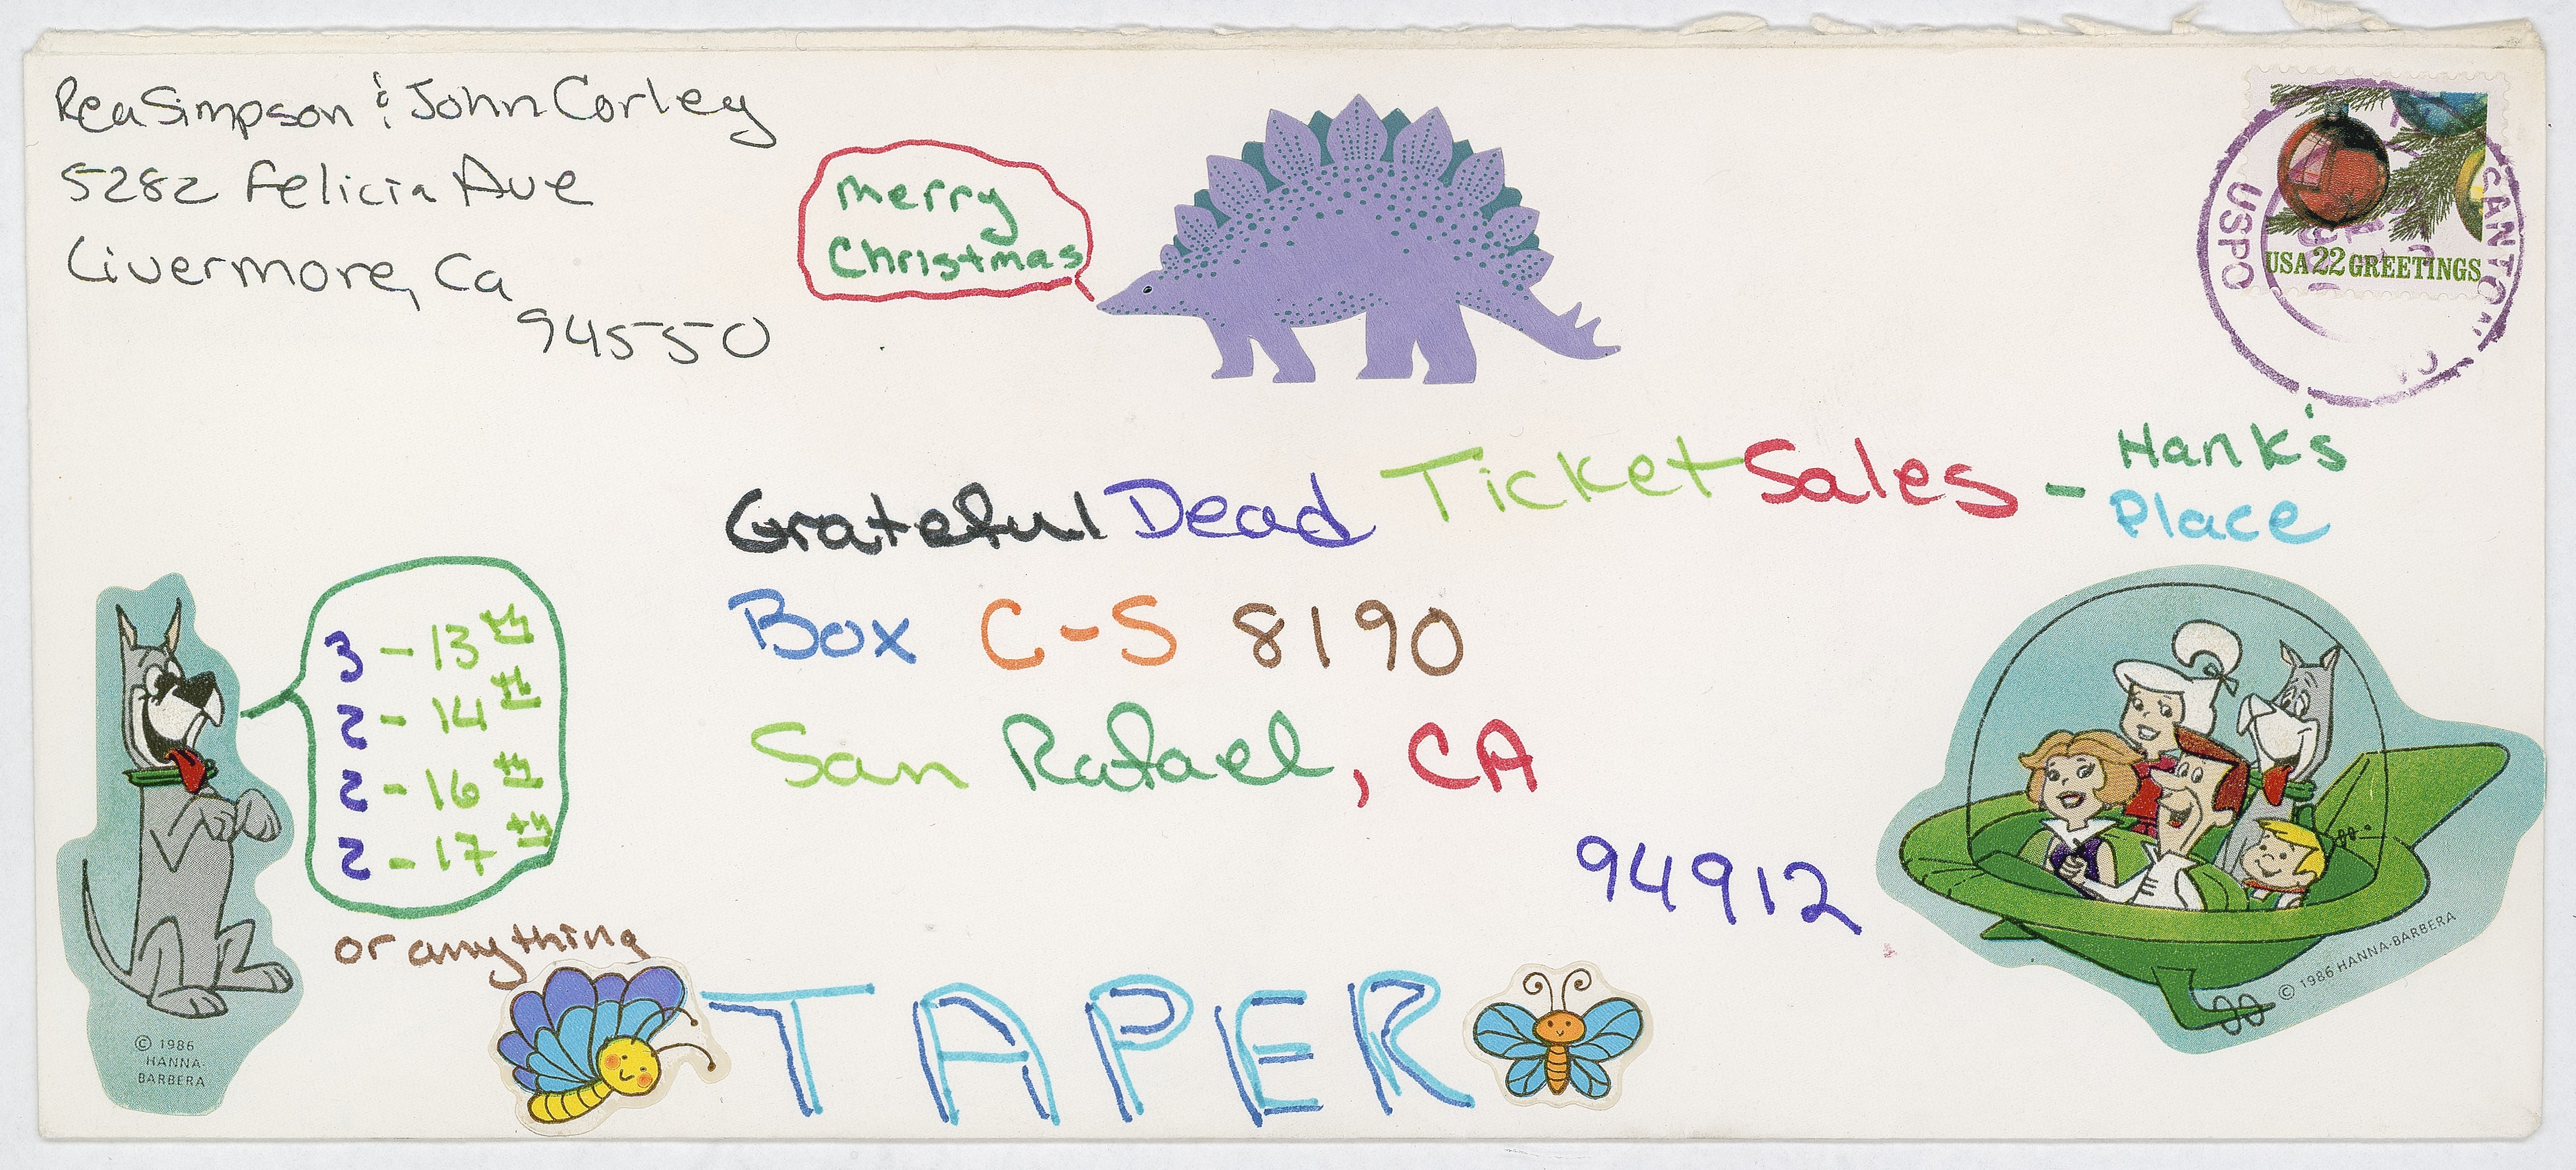 Rea Simpson & John Corley
5282 Felicia Ave
Livermore, Ca
94550
Merry
Christmas
USA 22 GREETINGS
USPO
Grateful Dead Ticket Sales - Hank's
Place
Box C-S 8190
San Rafael, CA
94912
3 - 13th
2 - 14th
2 - 16th
2 - 17th
or anything
TAPER
© 1986
HANNA-
BARBERA
© 1986 HANNA-BARBERA